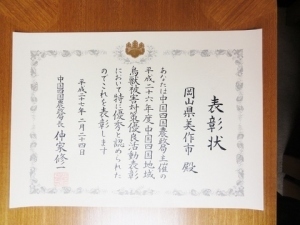 表彰状
岡山県美作市 殿
あなたは中国四国農政局主催の
平成二十六年度中国四国地域
鳥獣被害対策優良活動表彰
において特に優秀と認められた
のでこれを表彰します
平成二十七年二月二十四日
中国四国農政局長 仲家修一